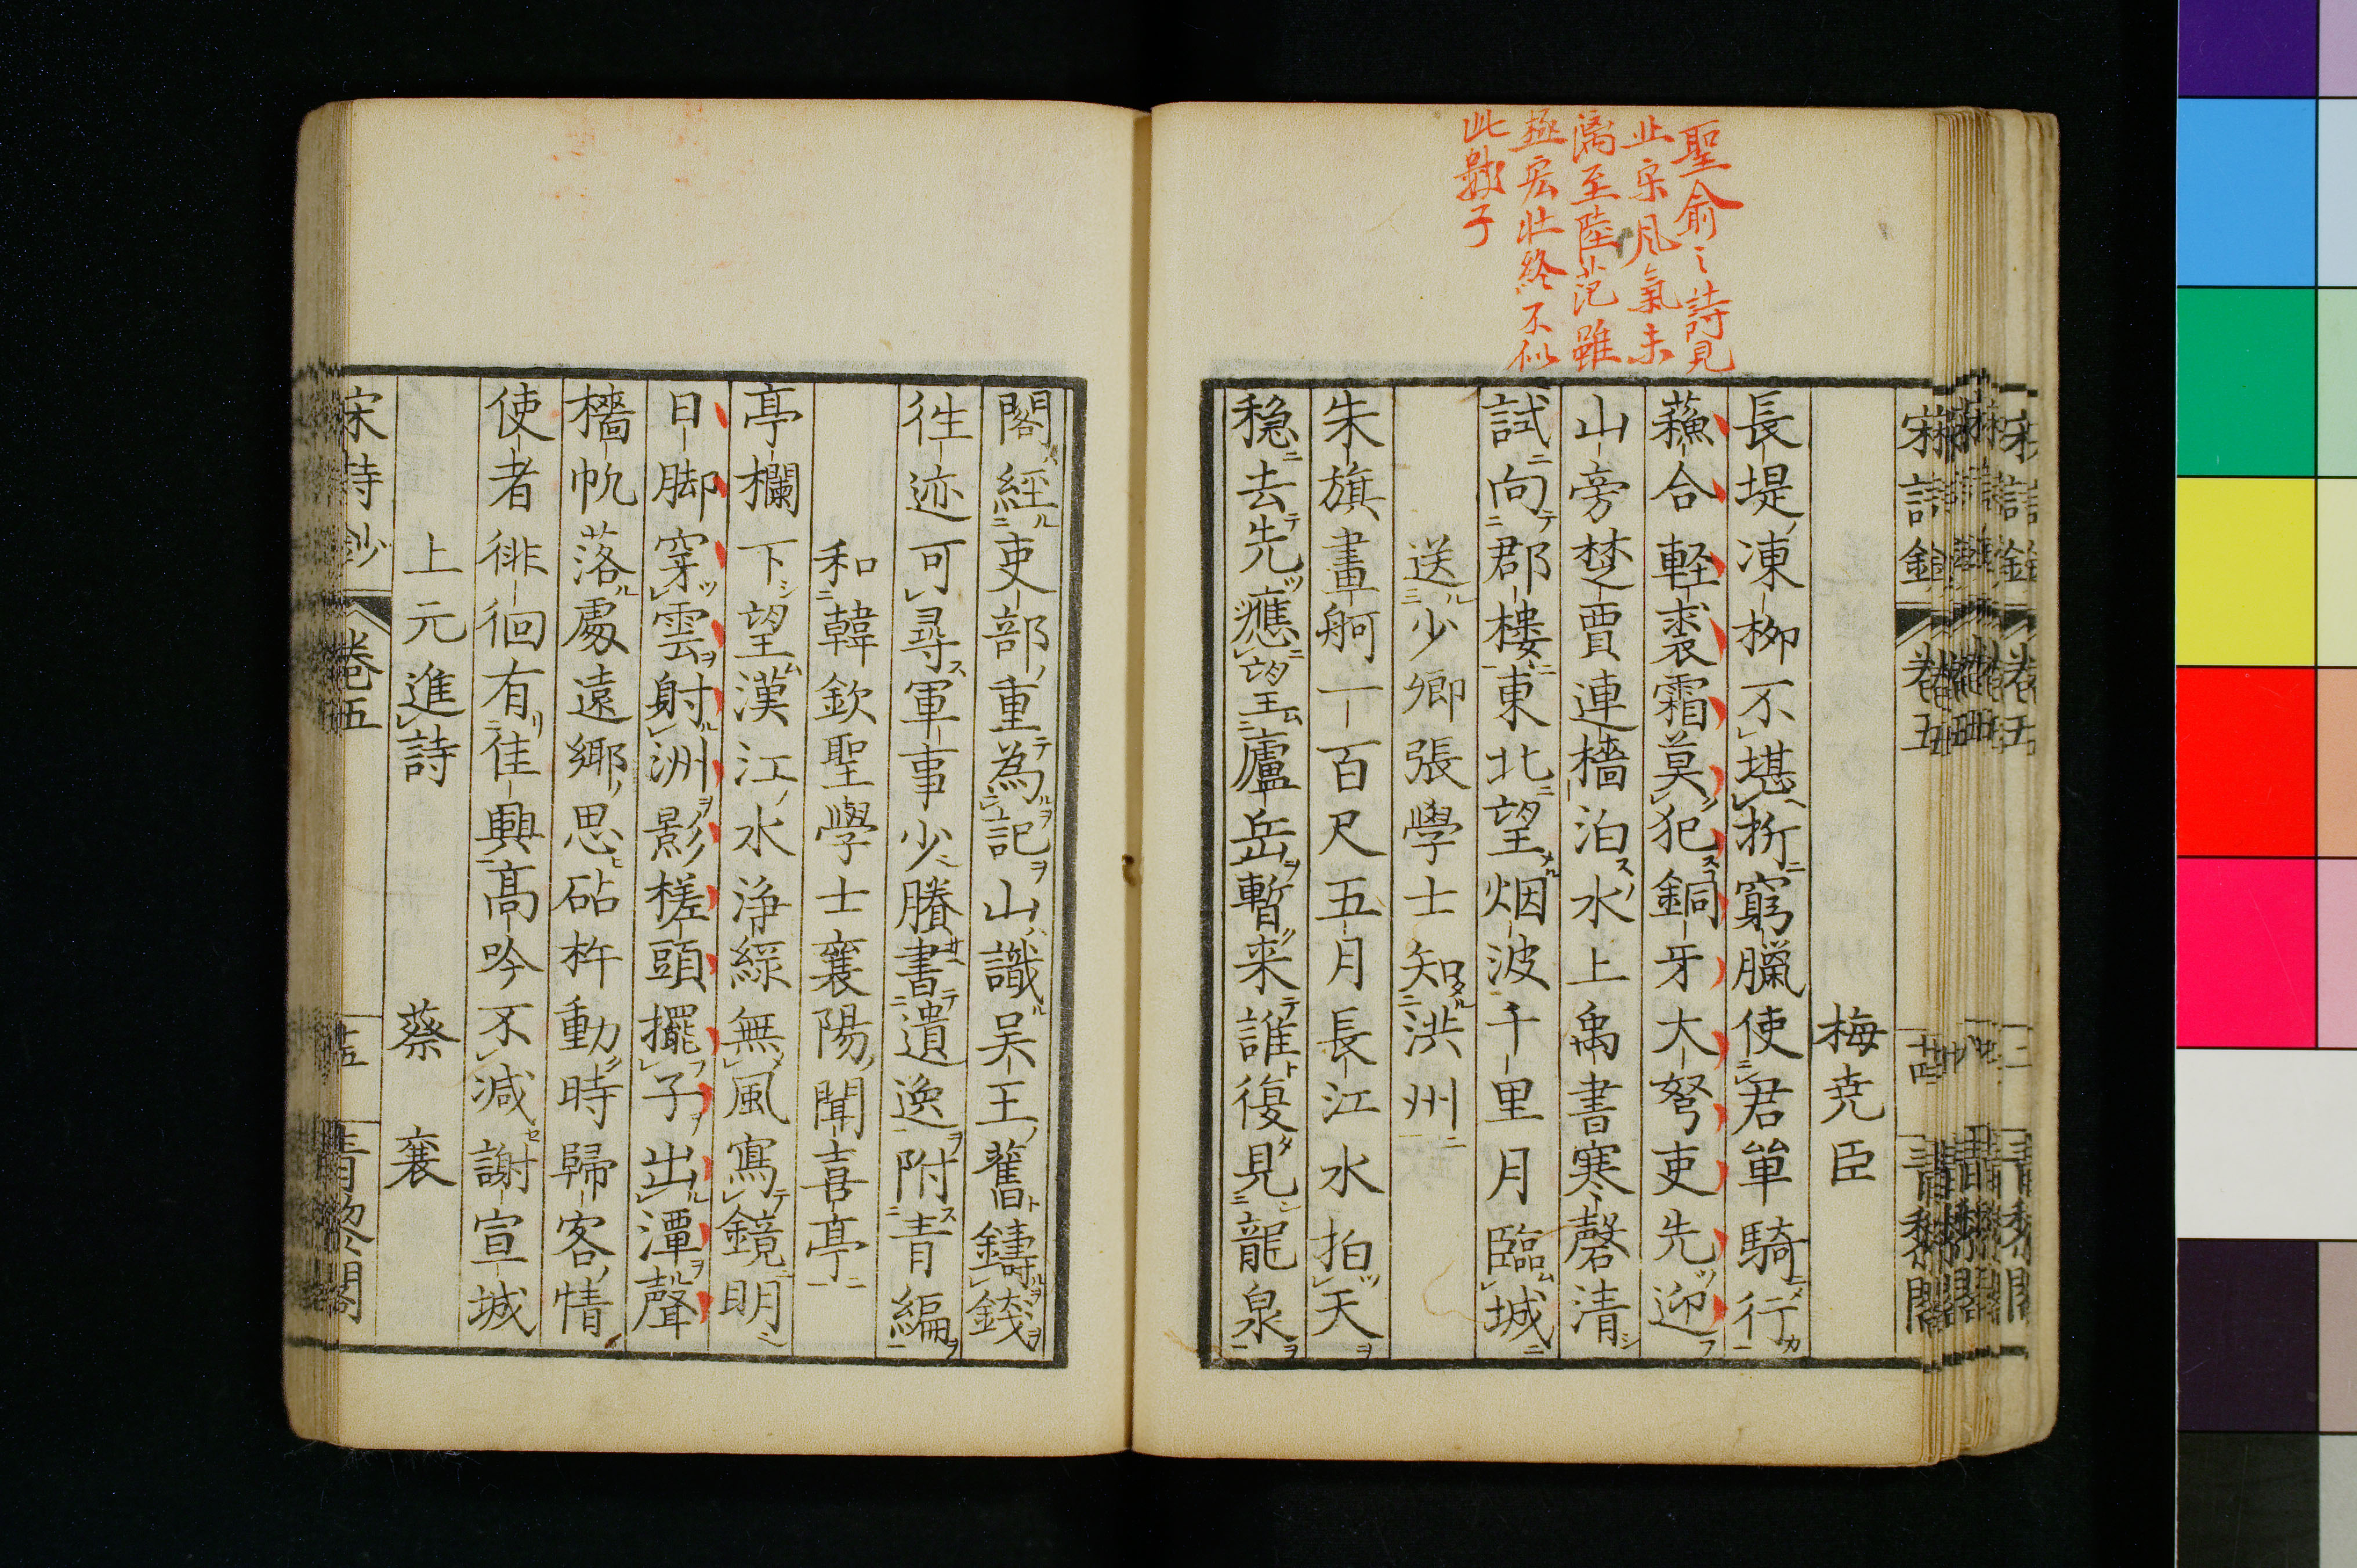 聖俞之詩見
此宋風氣未
漓至陸范雖
極宏壯終不似
此數子
梅尭臣
長堤凍柳不堪折窮臘使君単騎行
蘓合軽裘霜莫犯銅牙大弩吏先迎
山旁楚賈連檣泊水上禹書寒磬清
試向郡樓東北望烟波千里月臨城
送少卿張學士知洪州
朱旗畫舸一百尺五月長江水拍天
穏去先應望廬岳暫来誰復見龍泉
閣經吏部重為記山識吴王舊鑄錢
徃迹可尋軍事少賸書遺逸附青編
和韓欽聖學士襄陽聞喜亭
亭欄下望漢江水浄緑無風寫鏡明
日脚穿雲射洲影槎頭擺子出潭聲
檣帆落處遠鄉思砧杵動時歸客情
使者徘徊有佳興高吟不減謝宣城
上元進詩
蔡襄
宋詩鈔 卷五 青黎閣